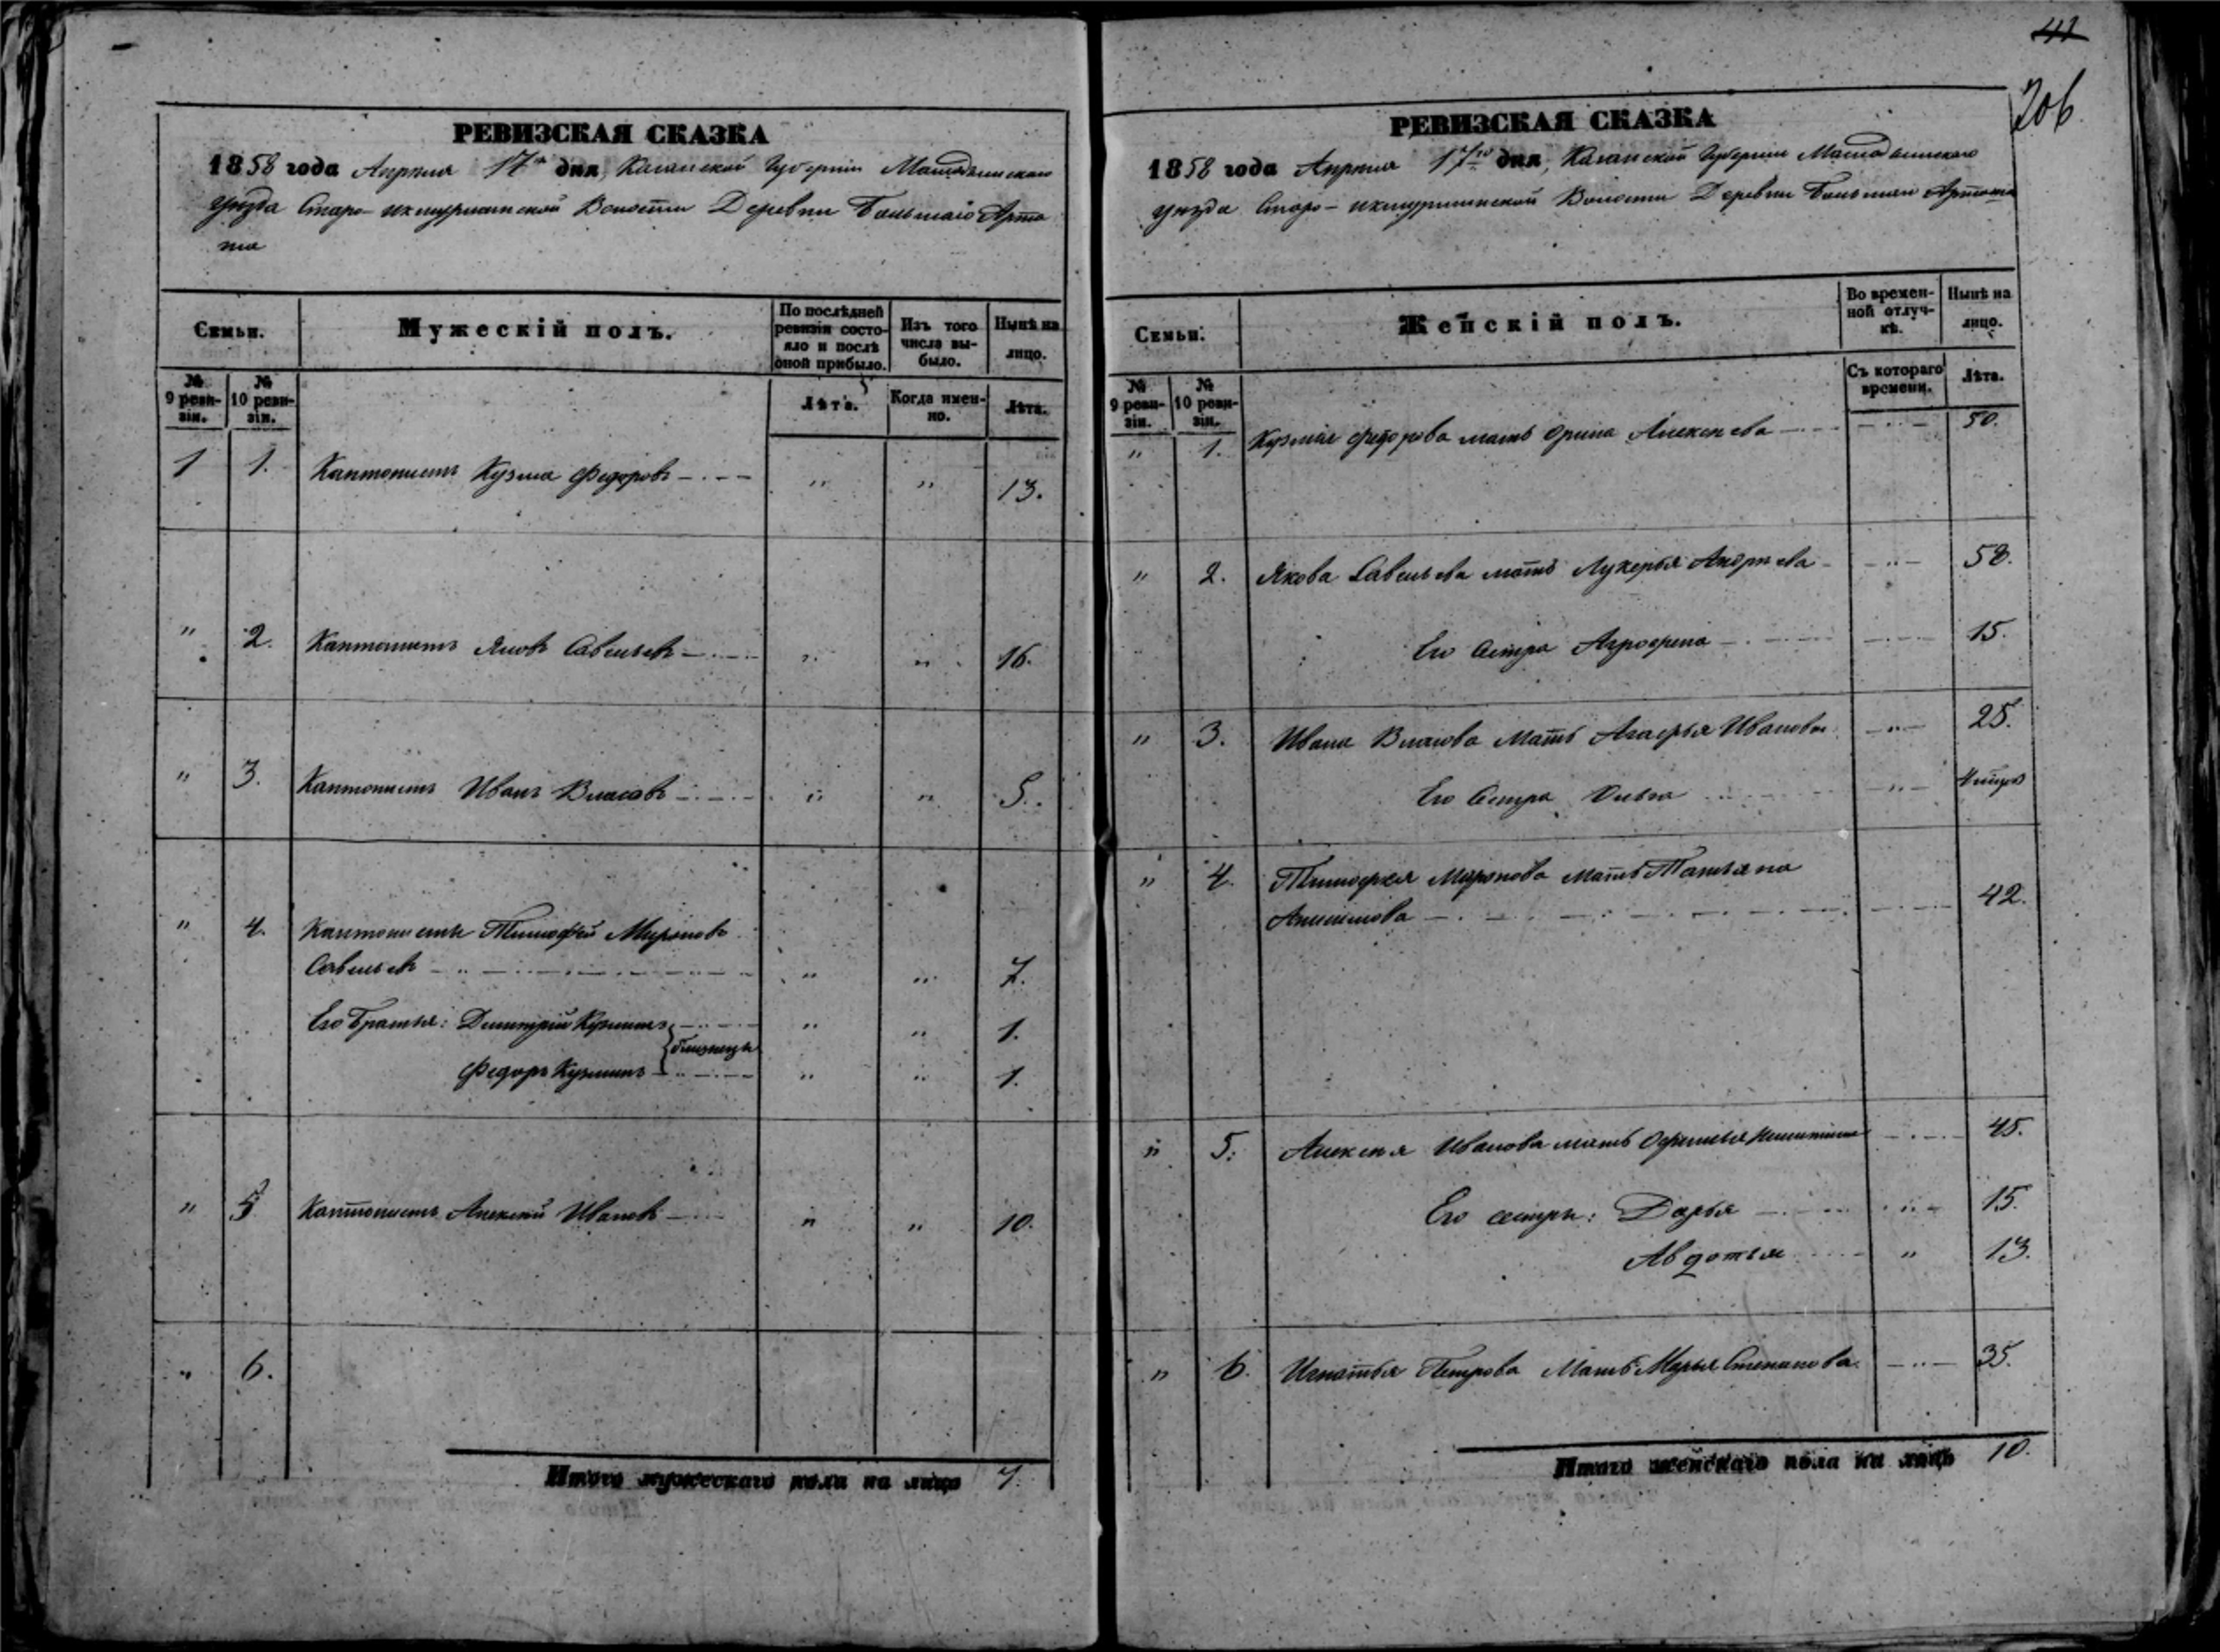 41
206
РЕВИЗСКАЯ СКАЗКА
1858 года Апреля 17го дня, Казанской Губернии Мамадышскаго
уезда Старо-икшурминской Волости Деревни Большаго Арта
ша
Семьи.
Мужескій полъ.
По послѣдней ревизіи состояло и послѣ оной прибыло.
Изъ того числа выбыло.
Нынѣ на лицо.
№ 9 ревизіи.
№ 10 ревизіи.
Лѣта.
Когда именно.
Лѣта.
1 1. Кантонистъ Кузма Федоровъ " " 13.
" 2. Кантонистъ Яковъ Савельевъ " " 16.
" 3. Кантонистъ Иванъ Власовъ " " 5.
" 4. Кантонисты Тимофей Мироновъ
Савельевъ " " 7.
Его Братья: Димитрій Кузминъ " " 1.
близнецы
Федоръ Кузминъ " " 1.
" 5 Кантонистъ Алексѣй Ивановъ " " 10.
" 6.
Итого мужескаго пола на лицо 7.
РЕВИЗСКАЯ СКАЗКА
1858 года Апреля 17го дня, Казанской Губернии Мамадышскаго
уезда Старо-икшурминской Волости Деревни Большаго Арташа
Семьи.
Женскій полъ.
Во временной отлучкѣ.
Нынѣ на лицо.
№ 9 ревизіи.
№ 10 ревизіи.
Съ котораго времени.
Лѣта.
" 1. Кузмы Федорова мать Орина Алексѣева " 50.
" 2. Якова Савельева мать Лукерья Андрѣева " 58.
Его Сестра Агрофена " 15.
" 3. Ивана Власова Мать Агафья Иванова " 25.
Его Сестра Ольга "
" 4. Тимофея Миронова Мать Татьяна
" 42.
" 5. Алексѣя Иванова мать Офимья " 45.
Его сестры: Дарья " 15.
Авдотья " 13.
" 6. Игнатья Петрова Мать Марья Степанова " 35.
Итого женскаго пола на лицо 10.